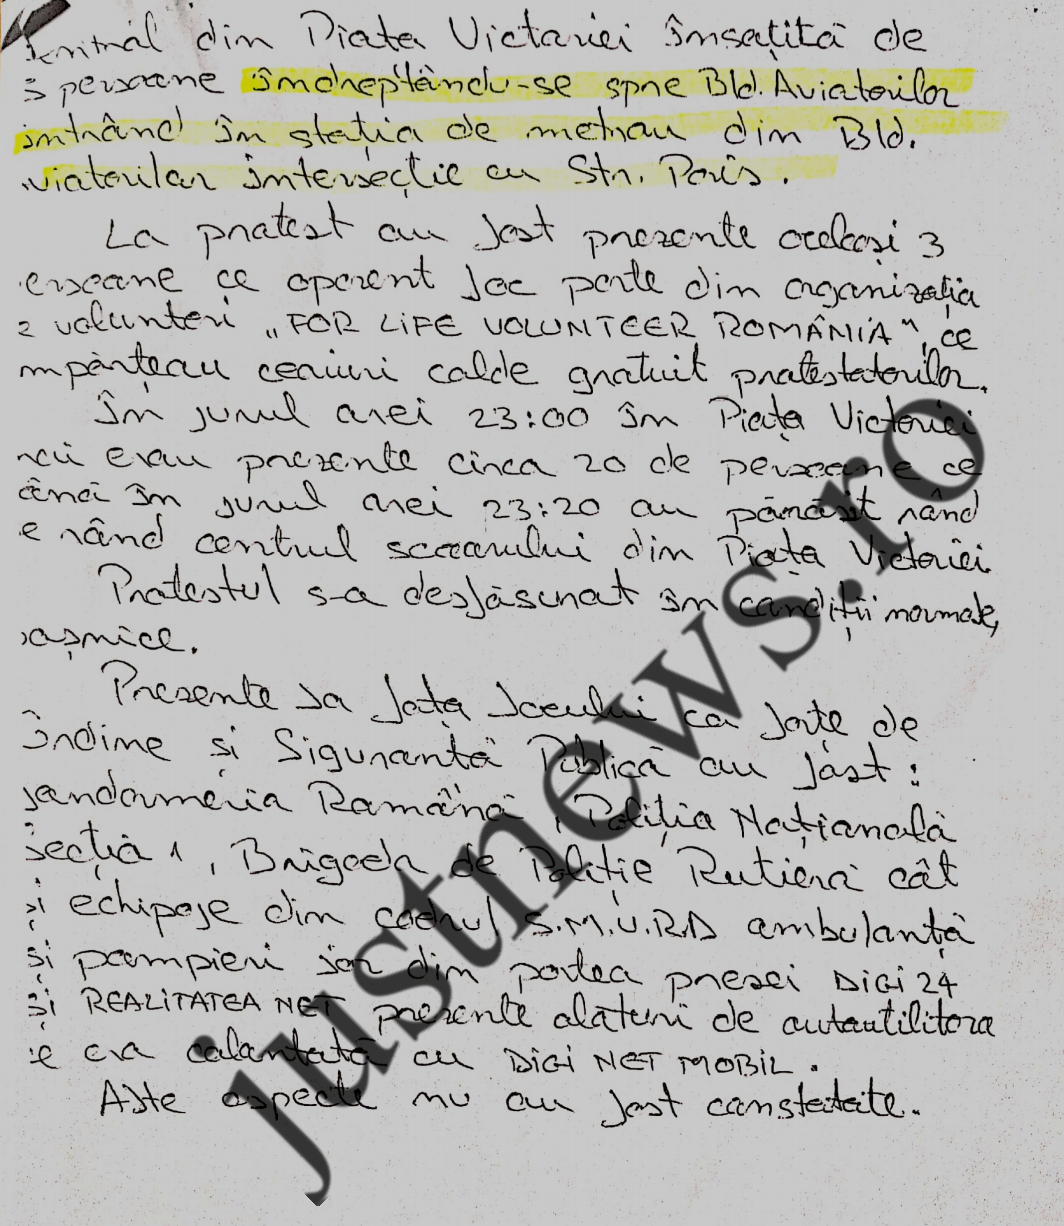 din Piața Victoriei însoțită de
3 persoane îndreptându-se spre Bld. Aviatorilor
intrând în stația de metrou din Bld.
viatorilor intersecție cu Str. Paris.
La protest au fost prezente aceleași 3
ersoane ce aparent fac parte din organizația
e voluntari „FOR LIFE VOLUNTEER ROMÂNIA", ce
mpărțeau ceaiuri calde gratuit protestatarilor.
În jurul orei 23:00 în Piața Victoriei
mai erau prezente circa 20 de persoane ce
ână în jurul orei 23:20 au părăsit rând
e rând centrul scuarului din Piața Victoriei.
Protestul s-a desfășurat în condiții normale,
pașnice.
Prezente la fața locului ca forțe de
Ordine și Siguranță Publică au fost:
Jandarmeria Română, Poliția Națională
Secția 1, Brigada de Poliție Rutieră cât
și echipaje din cadrul S.M.U.R.D ambulanță
și pompieri iar din partea presei DIGI 24
și REALITATEA NET prezente alături de autoutilitara
ce era colantată cu DIGI NET MOBIL.
Alte aspecte nu au fost constatate.
justnews.ro